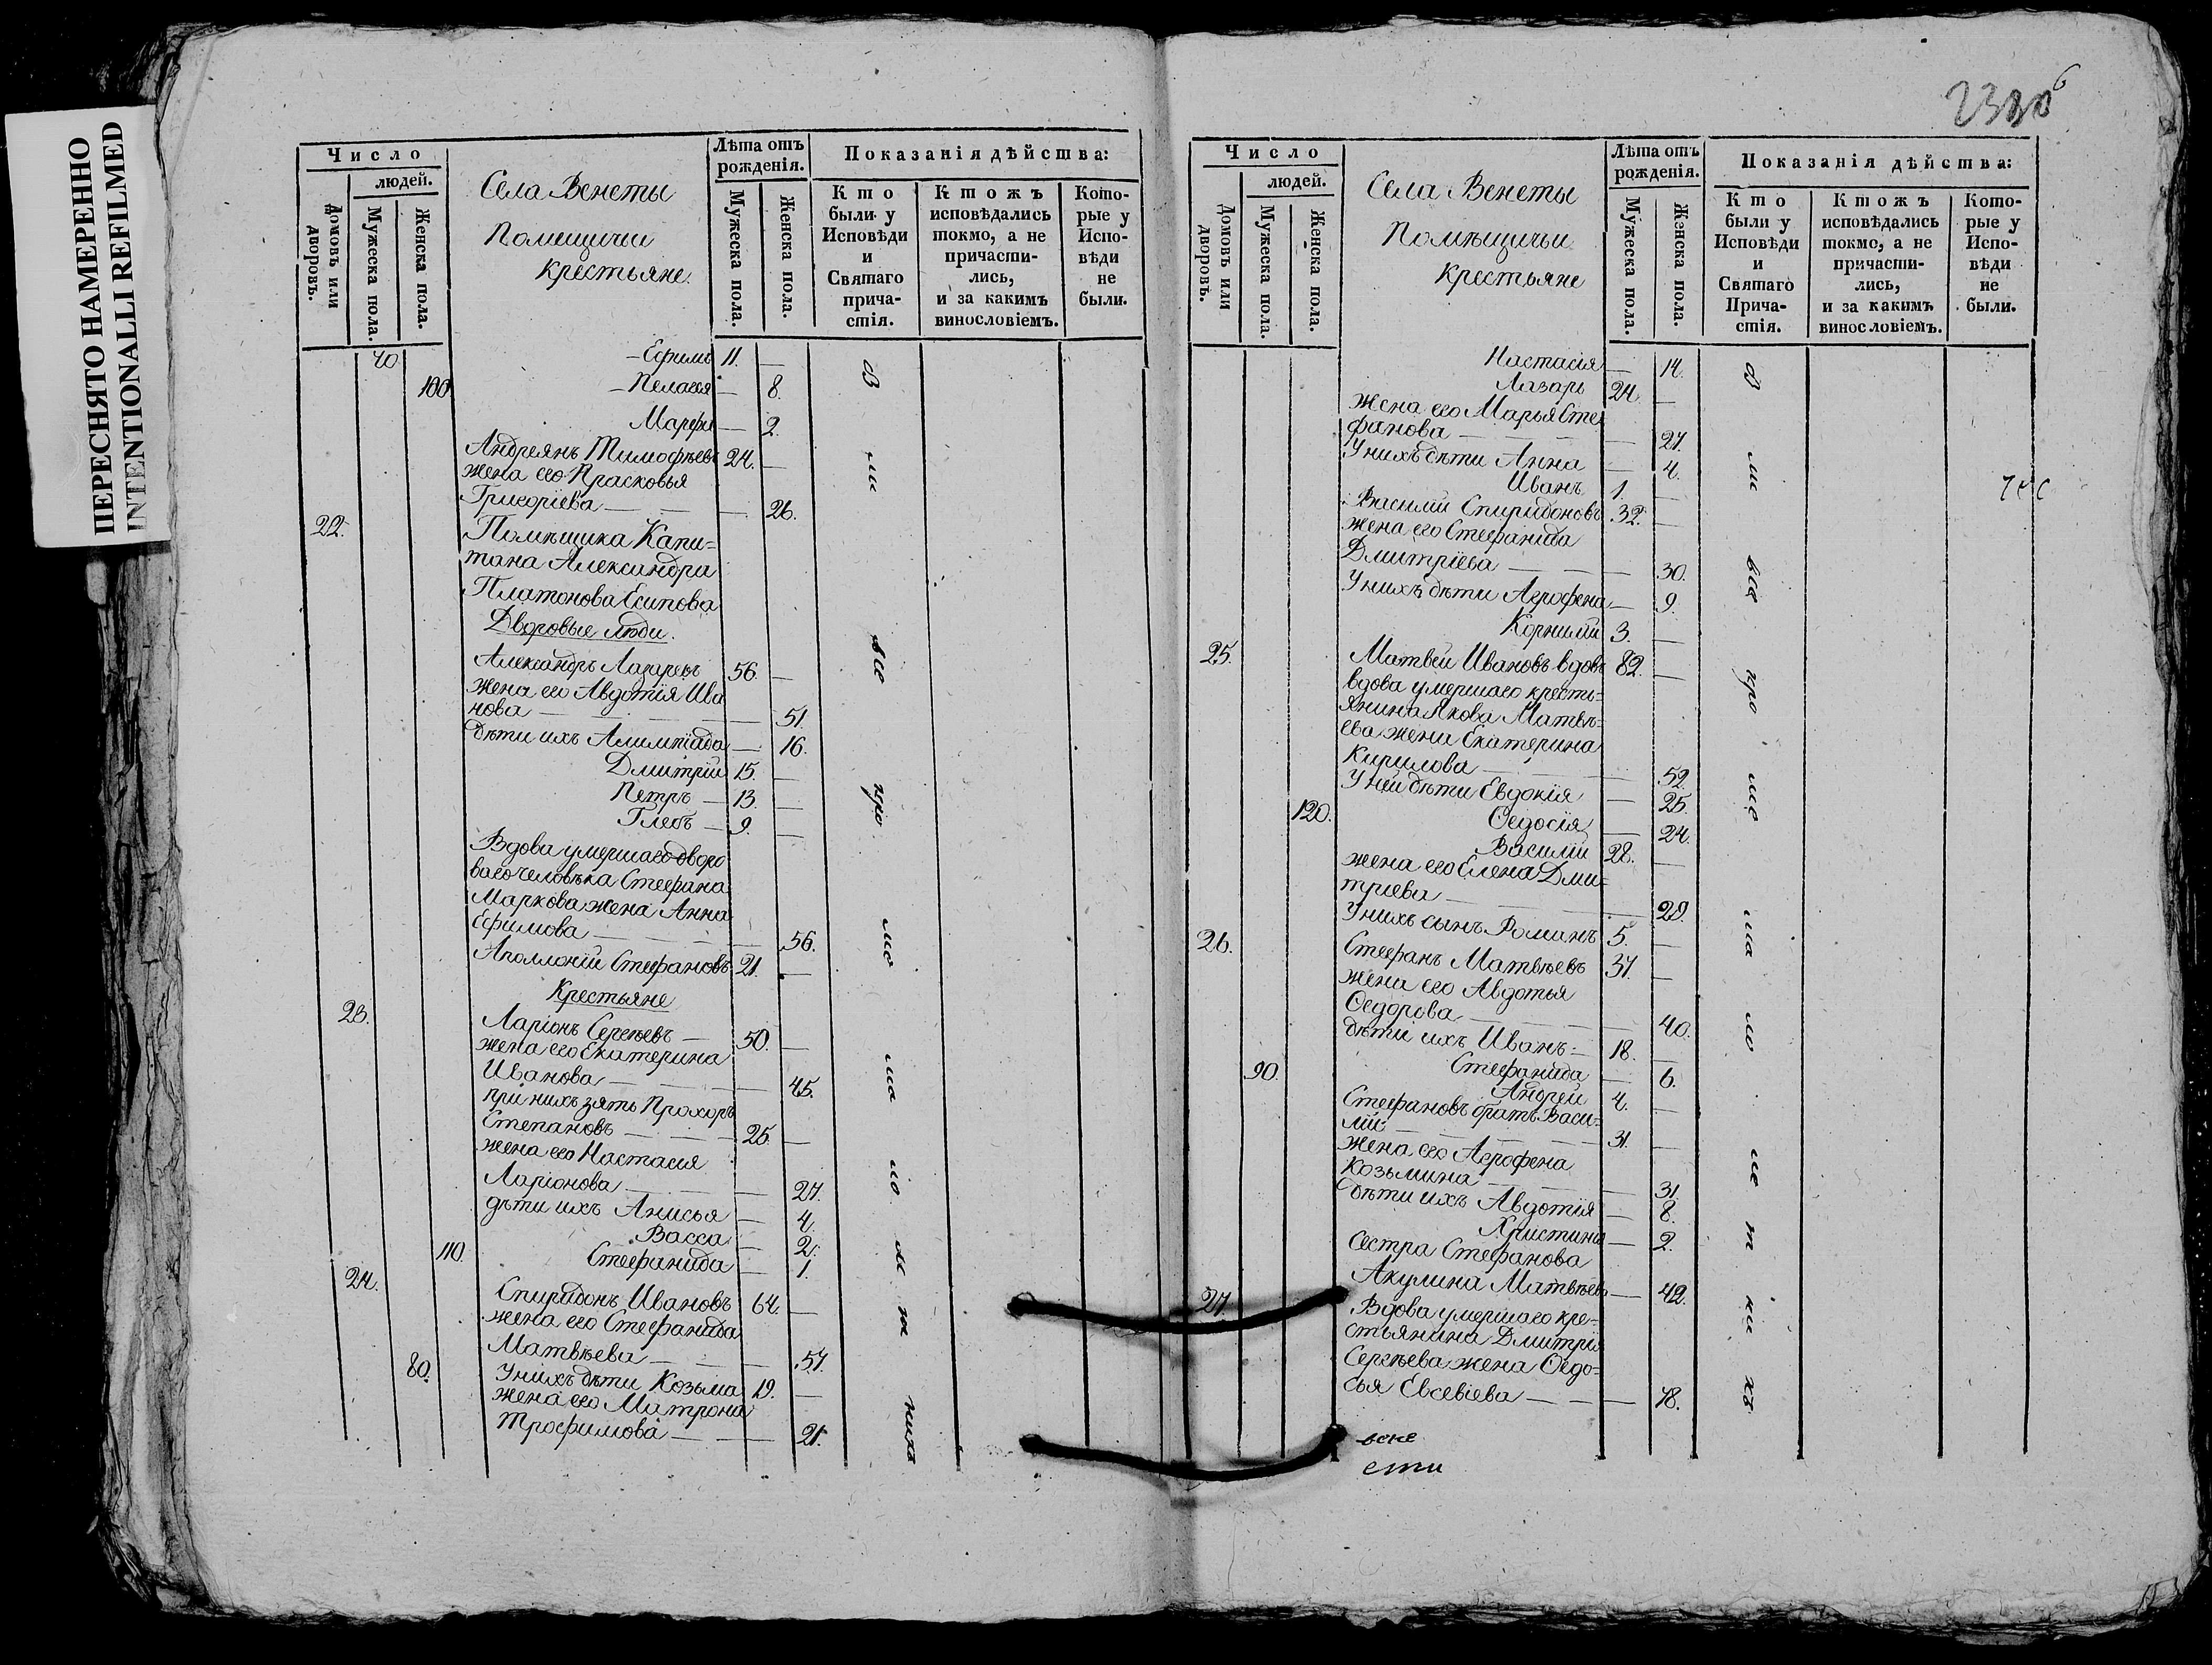 ПЕРЕСНЯТО НАМЕРЕННО
INTENTIONALLI REFILMED
Число
людей.
Домовъ или дворовъ.
Мужеска пола.
Женска пола.
Села Венеты
Помещичьи
крестьяне.
Лѣта отъ рожденія.
Мужеска пола.
Женска пола.
Показанія дѣйства:
Кто были у Исповѣди и Святаго прича-стія.
Ктожъ исповѣдались токмо, а не причасти-лись, и за какимъ винословіемъ.
Кото-рые у Испо-вѣди не были.
Ефимъ 11. —
100 Пелагея — 8.
Марфа — 2.
Андреянъ Тимофѣевъ 24. —
жена его Прасковья
Григоріева — 26.
22. Помѣщика Капи=
тана Александра
Платонова Есипова
Дворовые люди.
Александръ Лазаревъ 56. —
жена его Авдотія Ива
нова — 51.
дѣти ихъ Алимпіада — 16.
Дмитрій 15. —
Петръ — 13. —
Глебъ — 9. —
Вдова умершаго дворо
ваго человѣка Стефана
Маркова жена Анна
Ефимова — 56.
Аполлоній Стефановъ 21. —
Крестьяне
23. Ларіонъ Сергѣевъ — 50. —
жена его Екатерина
Иванова — 45.
при нихъ зять Прохоръ
Степановъ — 25. —
жена его Настасія
Ларіонова — 27.
дѣти ихъ Анисья — 4.
Васса — 2.
110. Стефанида — 1.
24. Спиридонъ Ивановъ 64. —
жена его Стефанида
Матвѣева — 57.
80. Унихъ дѣти Козьма 19. —
жена его Матрона
Трофимова — 21.
Число
людей.
Домовъ или дворовъ.
Мужеска пола.
Женска пола.
Села Венеты
Помѣщичьи
крестьяне
Лѣта отъ рожденія.
Мужеска пола.
Женска пола.
Показанія дѣйства:
Кто были у Исповѣди и Святаго Прича-стія.
Ктожъ исповѣдались токмо, а не причасти-лись, и за какимъ винословіемъ.
Кото-рые у Испо-вѣди не были.
Настасія — 14.
Лазарь 24. —
жена его Марья Сте
фанова — 27.
Унихъ дѣти Анна — 4.
Иванъ 1. —
Василій Спиридоновъ 32. —
жена его Стефанида
Дмитріева — 30.
Унихъ дѣти Агрофена — 9.
Корнилій 3. —
25. Матвѣй Ивановъ вдовъ 82. —
вдова умершаго кресть=
янина Якова Матвѣ=
ева жена Екатерина
Кирилова — 52.
У ней дѣти Евдокія — 25.
120. Ѳедосія — 24.
Василій 28. —
жена его Елена Дми=
тріева — 29.
Унихъ сынъ Романъ 5. —
26. Стефанъ Матвѣевъ 37. —
жена его Авдотья
Ѳедорова — 40.
дѣти ихъ Иванъ 18. —
90. Стефанида — 6.
Андрей 4. —
Стефановъ братъ Васи=
лій — 31. —
жена его Агрофена
Козьмина — 31.
дѣти ихъ Авдотія — 8.
Христина — 2.
Сестра Стефанова
Акулина Матвѣева — 42.
27. Вдова умершаго кре=
стьянина Дмитрія
Сергѣева жена Ѳедо=
сья Евсевіева — 78.